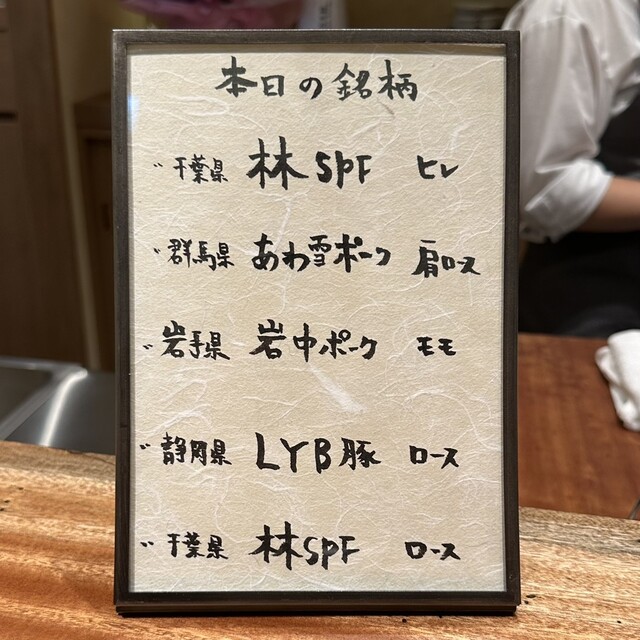 本日の銘柄
千葉県 林SPF ヒレ
群馬県 あわ雪ポーク 肩ロース
岩手県 岩中ポーク モモ
静岡県 LYB豚 ロース
千葉県 林SPF ロース